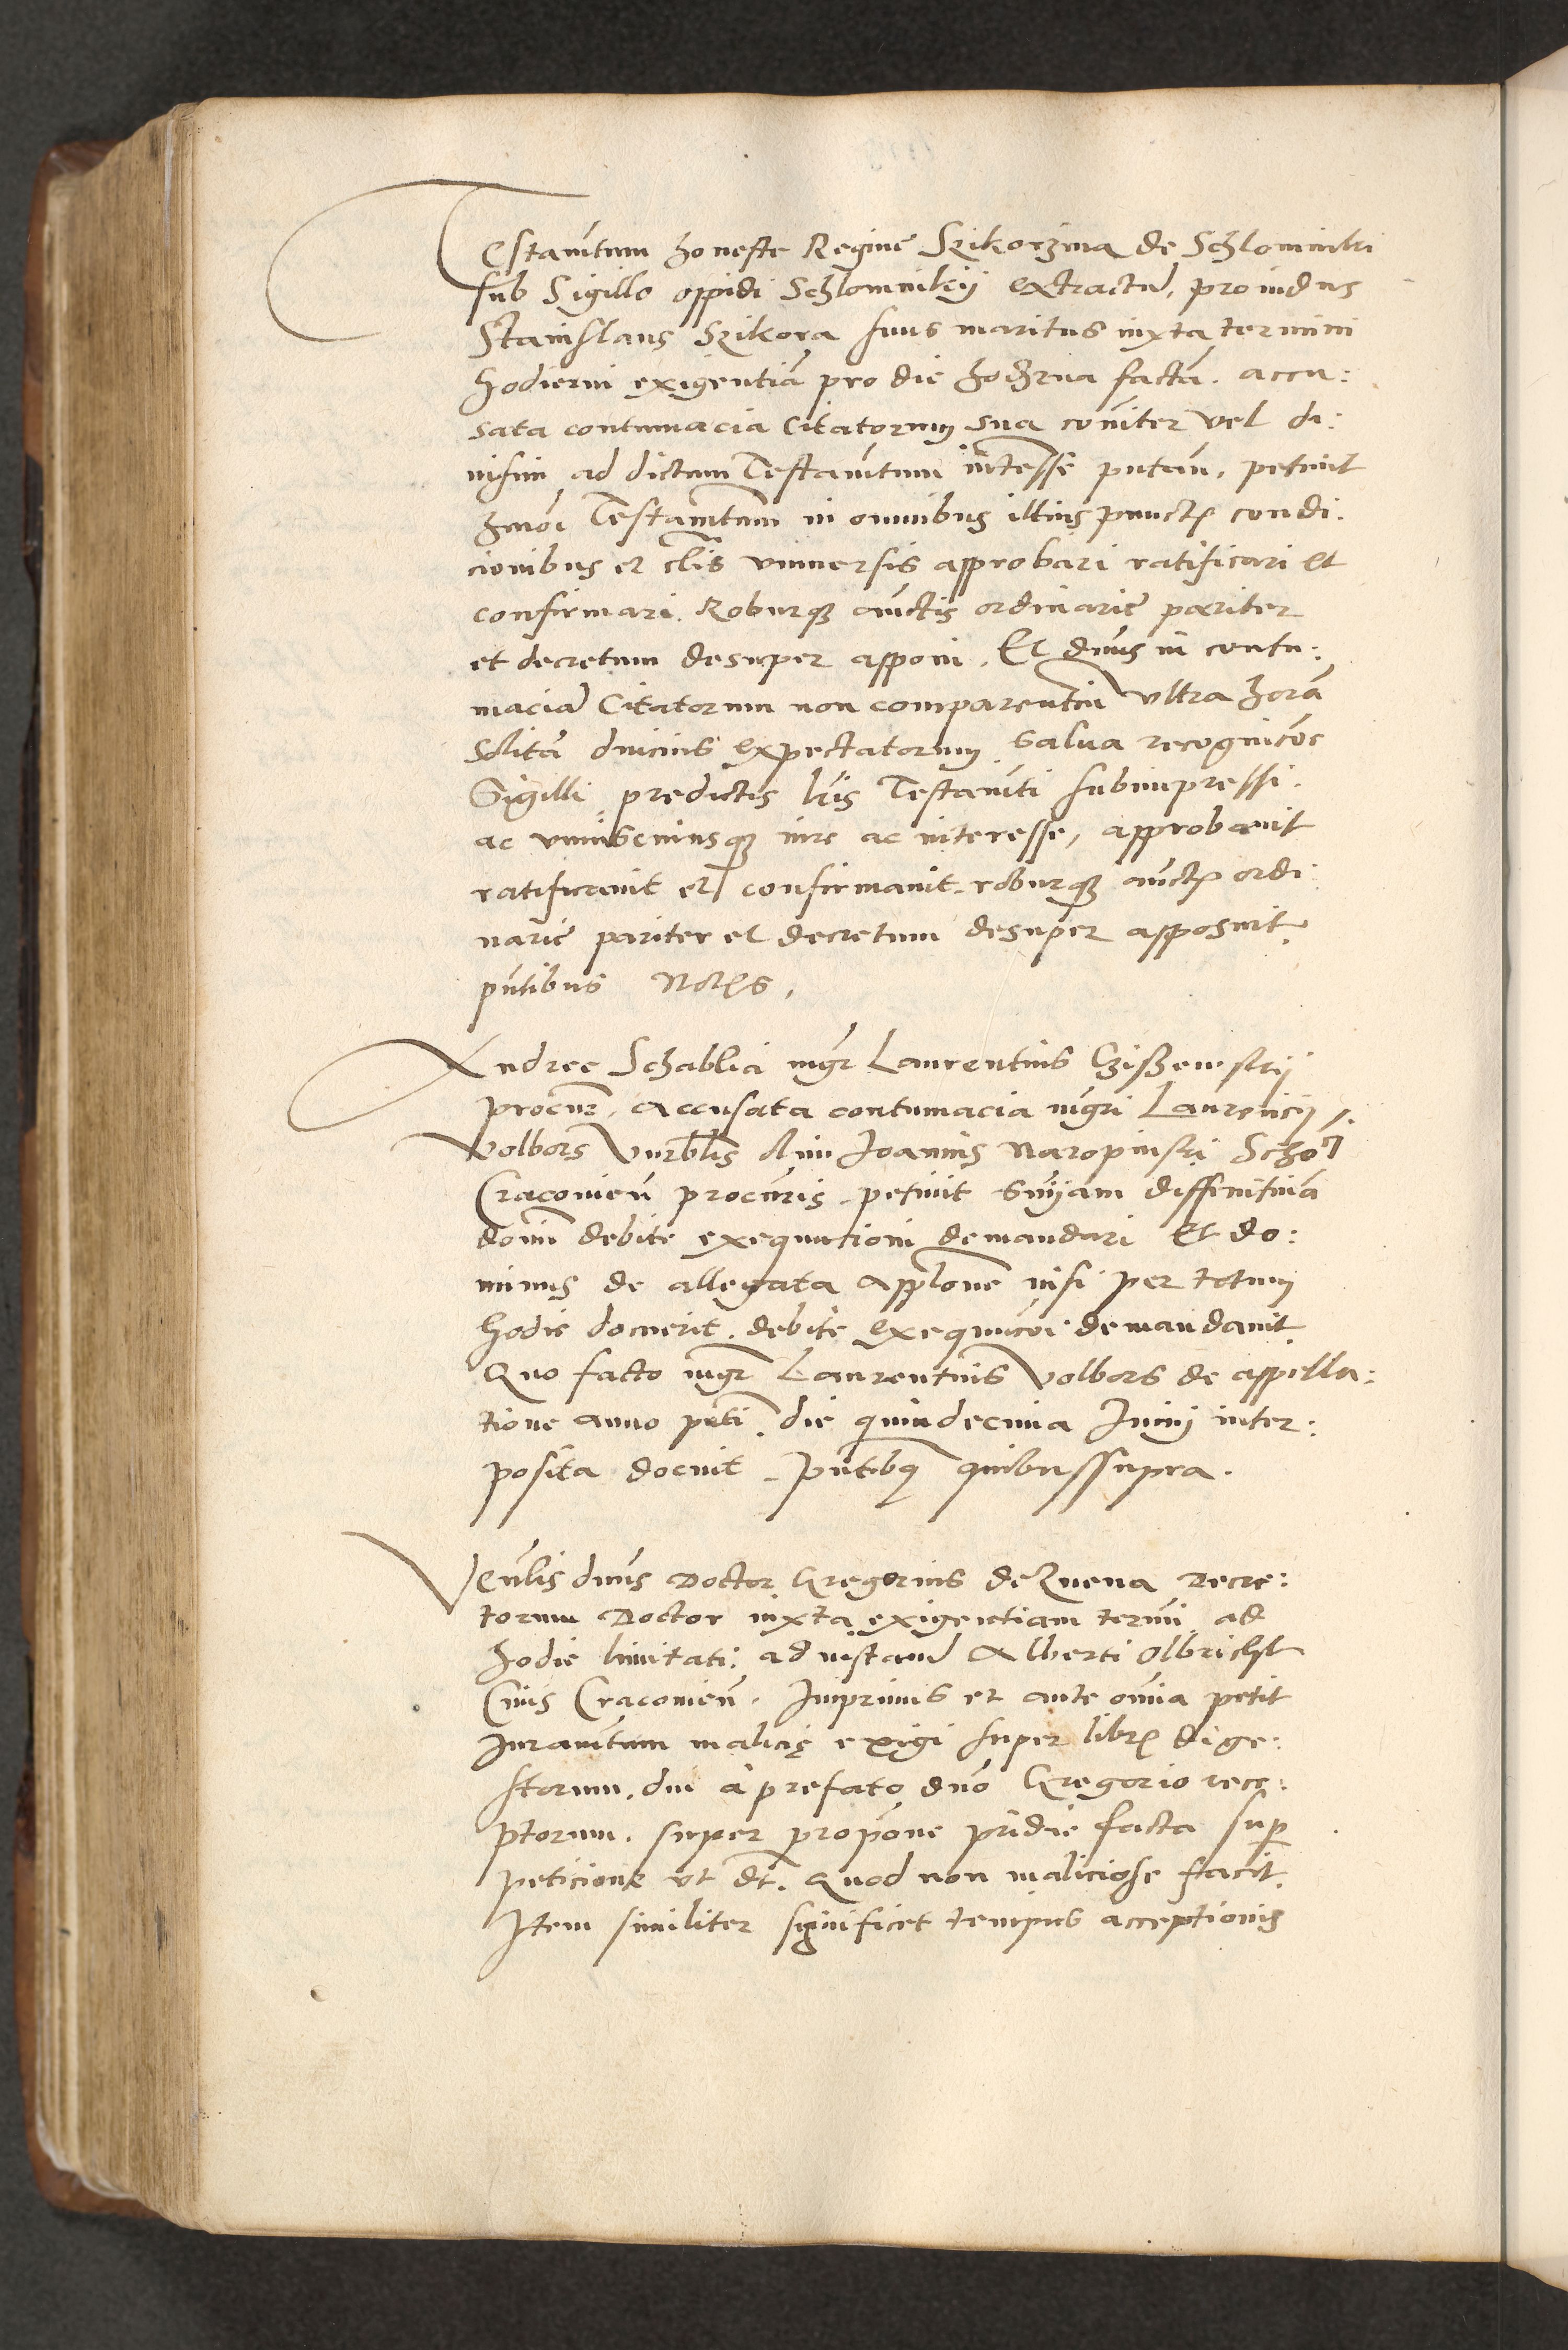 Testamētum honeste Regine Szikorzina de Schlomniki
sub Sigillo oppidi Schlomnikij extractū, prouidus
Stanislaus Szikora suus maritus iuxta termini
hodierni exigentiā pro die hodierna factā. accu:
sata contumacia Citatorum sua cōiter vel di:
uisim ad dictum Testamētum intēsse putan̄. petiuit
hmōi Testamētum in omnibus illius punctꝭ condi.
cionibus et clīs vniuersis approbari ratificari et
confirmari. Roburqꝫ auctis ordinarie pariter
et decretum desuper apponi. Et dn̄us in contu:
maciā Citatorum non comparentiū vltra horā
solitā diucius expectatorum salua recognicōe
Sigilli predictis lrīs Testamēti subimpressi.
ac vniuscuiusqꝫ iure ac interesse, approbauit
ratificauit et confirmauit roburqꝫ auctꝭ ordi
narie pariter et decretum desuper apposuit
pūtibus Notꝭs,
Andree Schablia mgr̄ Laurentius
procur̄. accusata contumacia mgrī Laurencij
Volbors Vn̄rblis dn̄i Joannis Naropinski Scho
Cracouien̄ procūris petiuit Sn̄iam diffinitiuā
debite exequutioni demandari Et do:
minus de allegata applōne nisi per totum
hodie docuerit. debite exequucōi demandauit
Quo facto mgr̄ Laurentius Volbors de appella:
tione anno pn̄ti die quindecima Junij inter:
posita docuit pn̄tibus quibussupra.
Vēn̄lis dn̄us Doctor Gregorius de Decre:
torum Doctor iuxta exigentiam termī ad
hodie limitati: ad instan̄ Alberti Olbricht
Ciuis Cracouien̄. Inprimis et ante omīa petit
Juramētum malicię exigi super librꝭ dige:
storum. a prefato dn̄o Gregorio rece:
ptorum. super propōne pridie facta sup
peticione vt dt̄. Quod non maliciose facit.
Item similiter significet tempus acceptionis